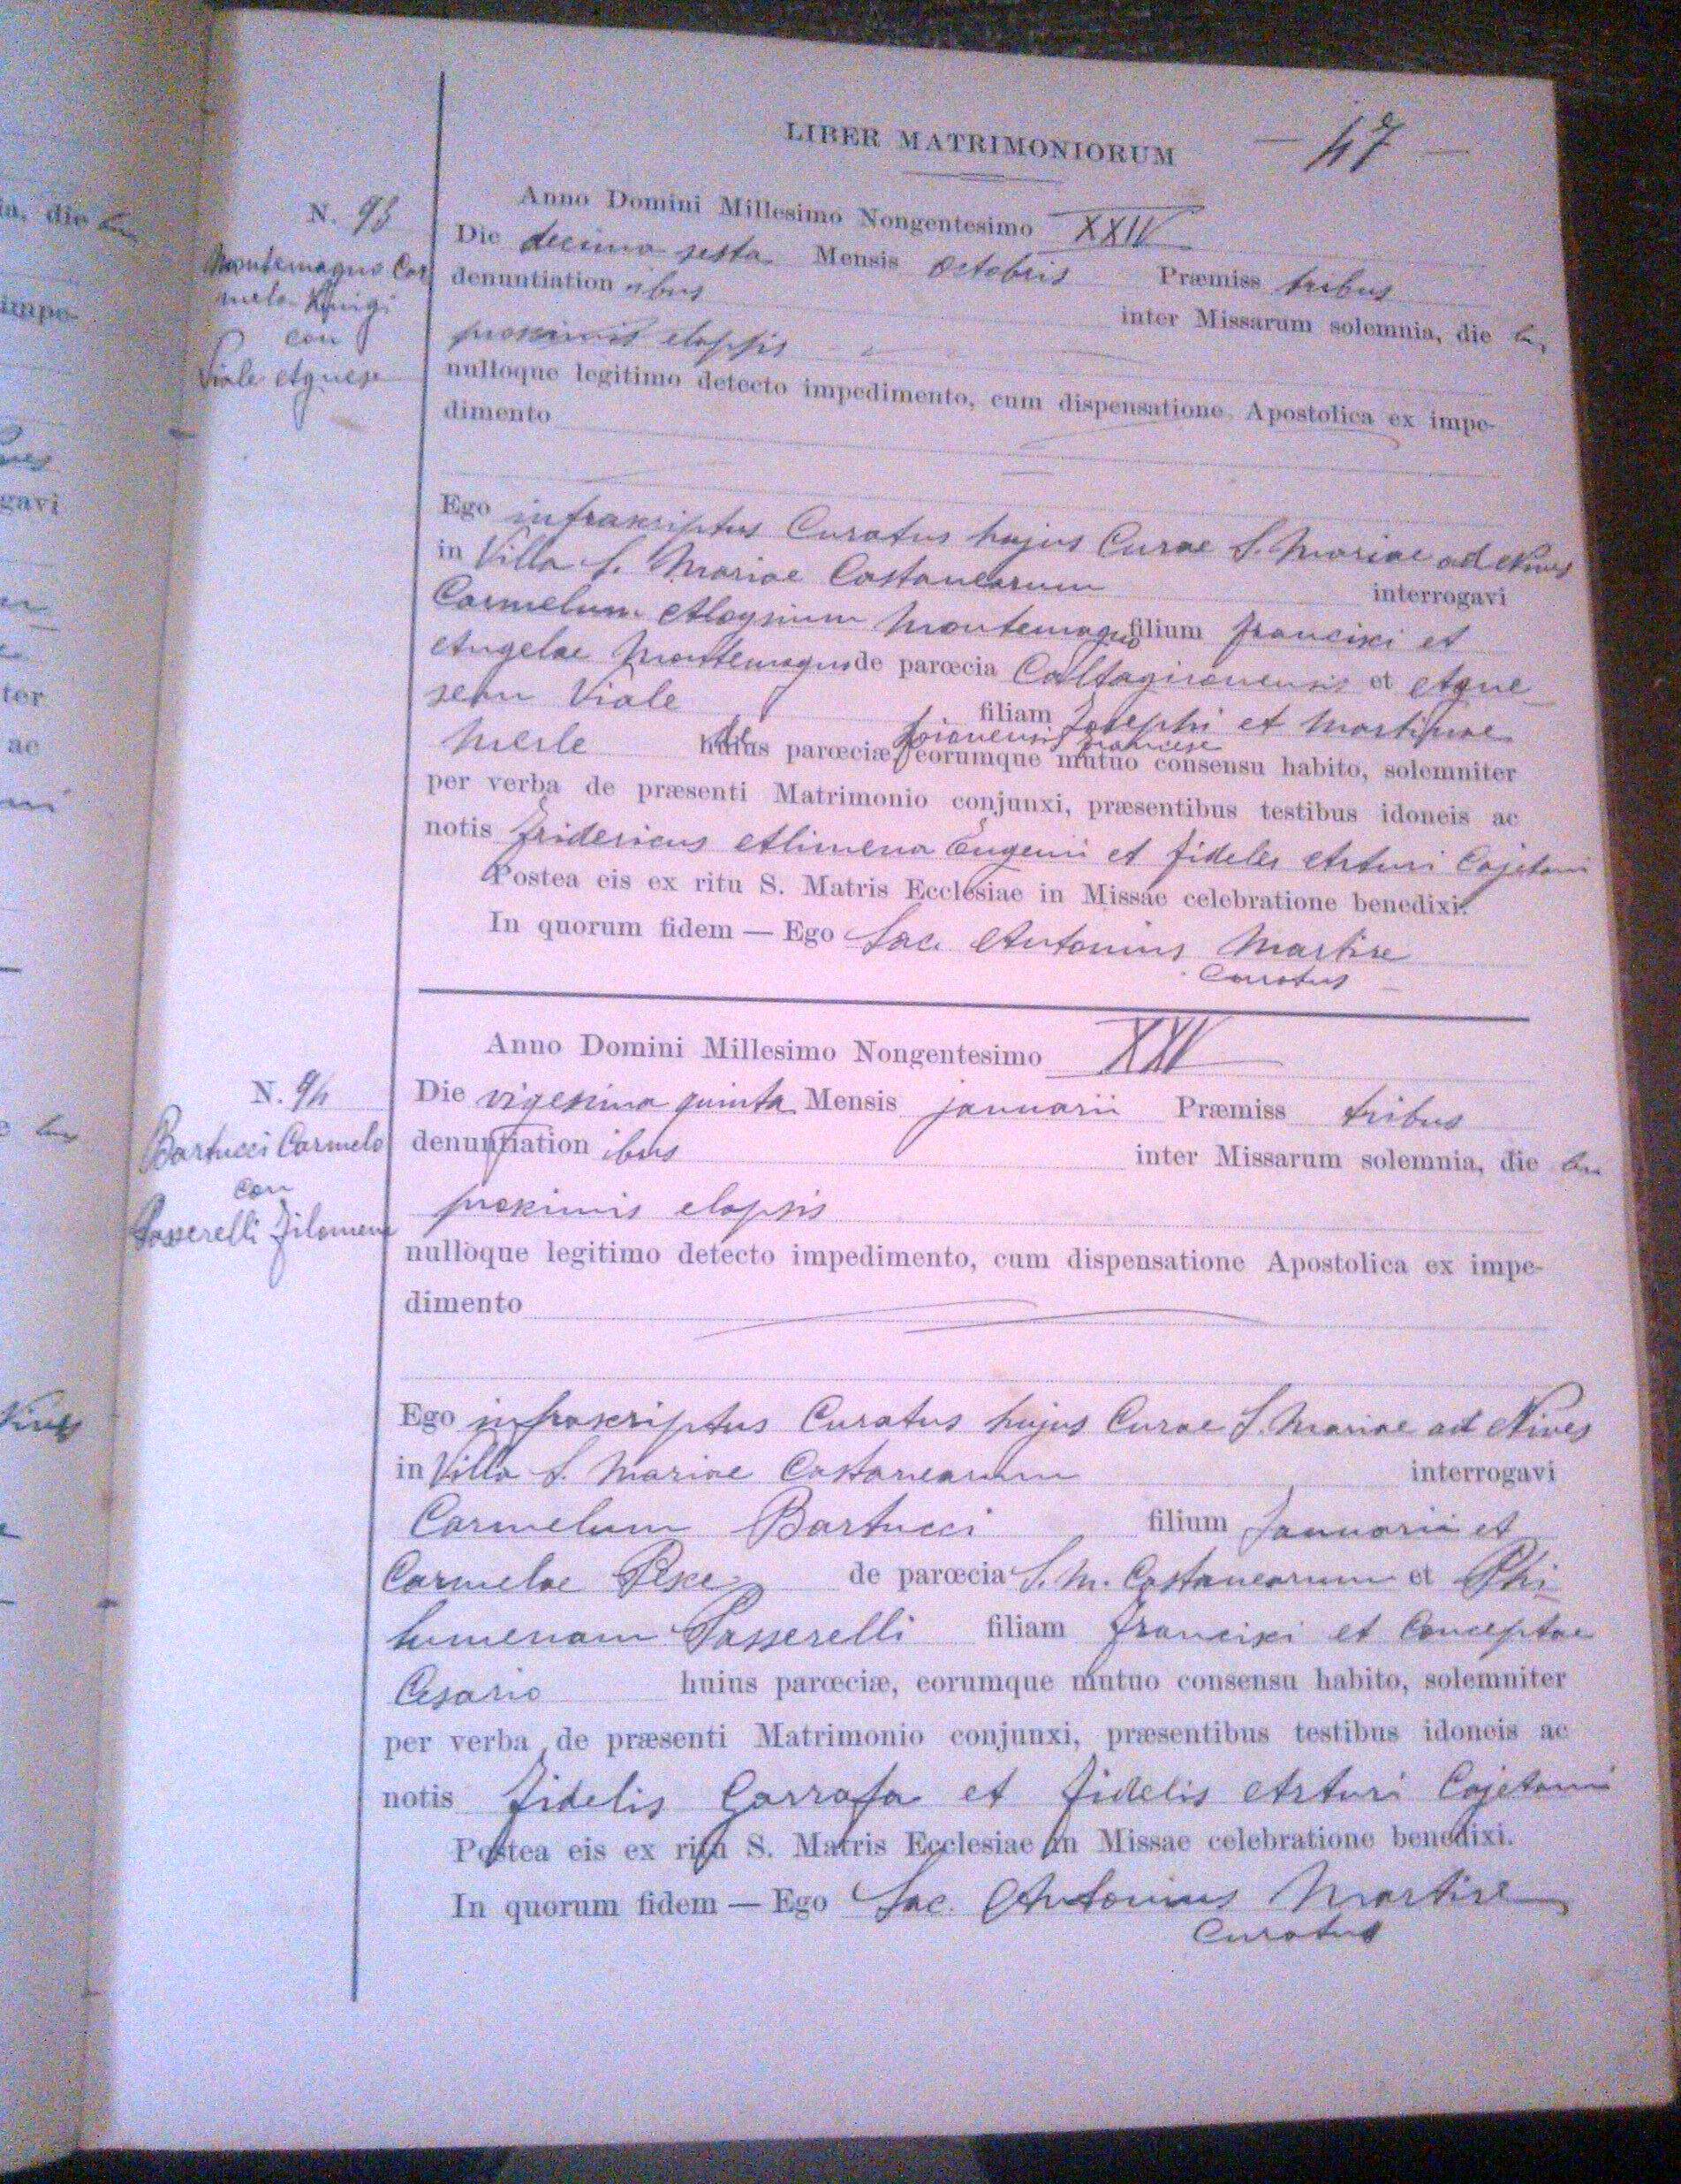 LIBER MATRIMONIORUM — 47 —
Anno Domini Millesimo Nongentesimo XXIV
N. 93
Die decima sesta Mensis Octobris Præmiss tribus
denuntiation ibus inter Missarum solemnia, die
Montemagno Car
melo
con
Viale Agnese
proximis elapsis
nulloque legitimo detecto impedimento, cum dispensatione Apostolica ex impe-
dimento
Ego infrascriptus Curatus hujus Curae S. Mariae ad Nives
in Villa S. Mariae Castanearum interrogavi
Carmelum Aloysium Montemagno filium Francisci et
Angelae Montemagno de parœcia Caltagironensis et Agne
sem Viale filiam Josephi et Martinae
Merle huius parœciæ eorumque mutuo consensu habito, solemniter
per verba de præsenti Matrimonio conjunxi, præsentibus testibus idoneis ac
notis Fridericus Alimena Eugenii et Fidelis Arturi Cajetani
Postea eis ex ritu S. Matris Ecclesiae in Missae celebratione benedixi.
In quorum fidem — Ego Sac. Antonius Martire
Curatus
Anno Domini Millesimo Nongentesimo XXV
N. 94
Die vigesima quinta Mensis januarii Præmiss tribus
Bartucci Carmelo
con
Passerelli Filomena
denuntiation ibus inter Missarum solemnia, die
proximis elapsis
nulloque legitimo detecto impedimento, cum dispensatione Apostolica ex impe-
dimento
Ego infrascriptus Curatus hujus Curae S. Mariae ad Nives
in Villa S. Mariae Castanearum interrogavi
Carmelum Bartucci filium Januarii et
Carmelae Pesce de parœcia S. M. Castanearum et Phi
lumenam Passerelli filiam Francisci et Conceptae
Cesario huius parœciæ, eorumque mutuo consensu habito, solemniter
per verba de præsenti Matrimonio conjunxi, præsentibus testibus idoneis ac
notis Fidelis Carrafa et Fidelis Arturi Cajetani
Postea eis ex ritu S. Matris Ecclesiae in Missae celebratione benedixi.
In quorum fidem — Ego Sac. Antonius Martire
Curatus